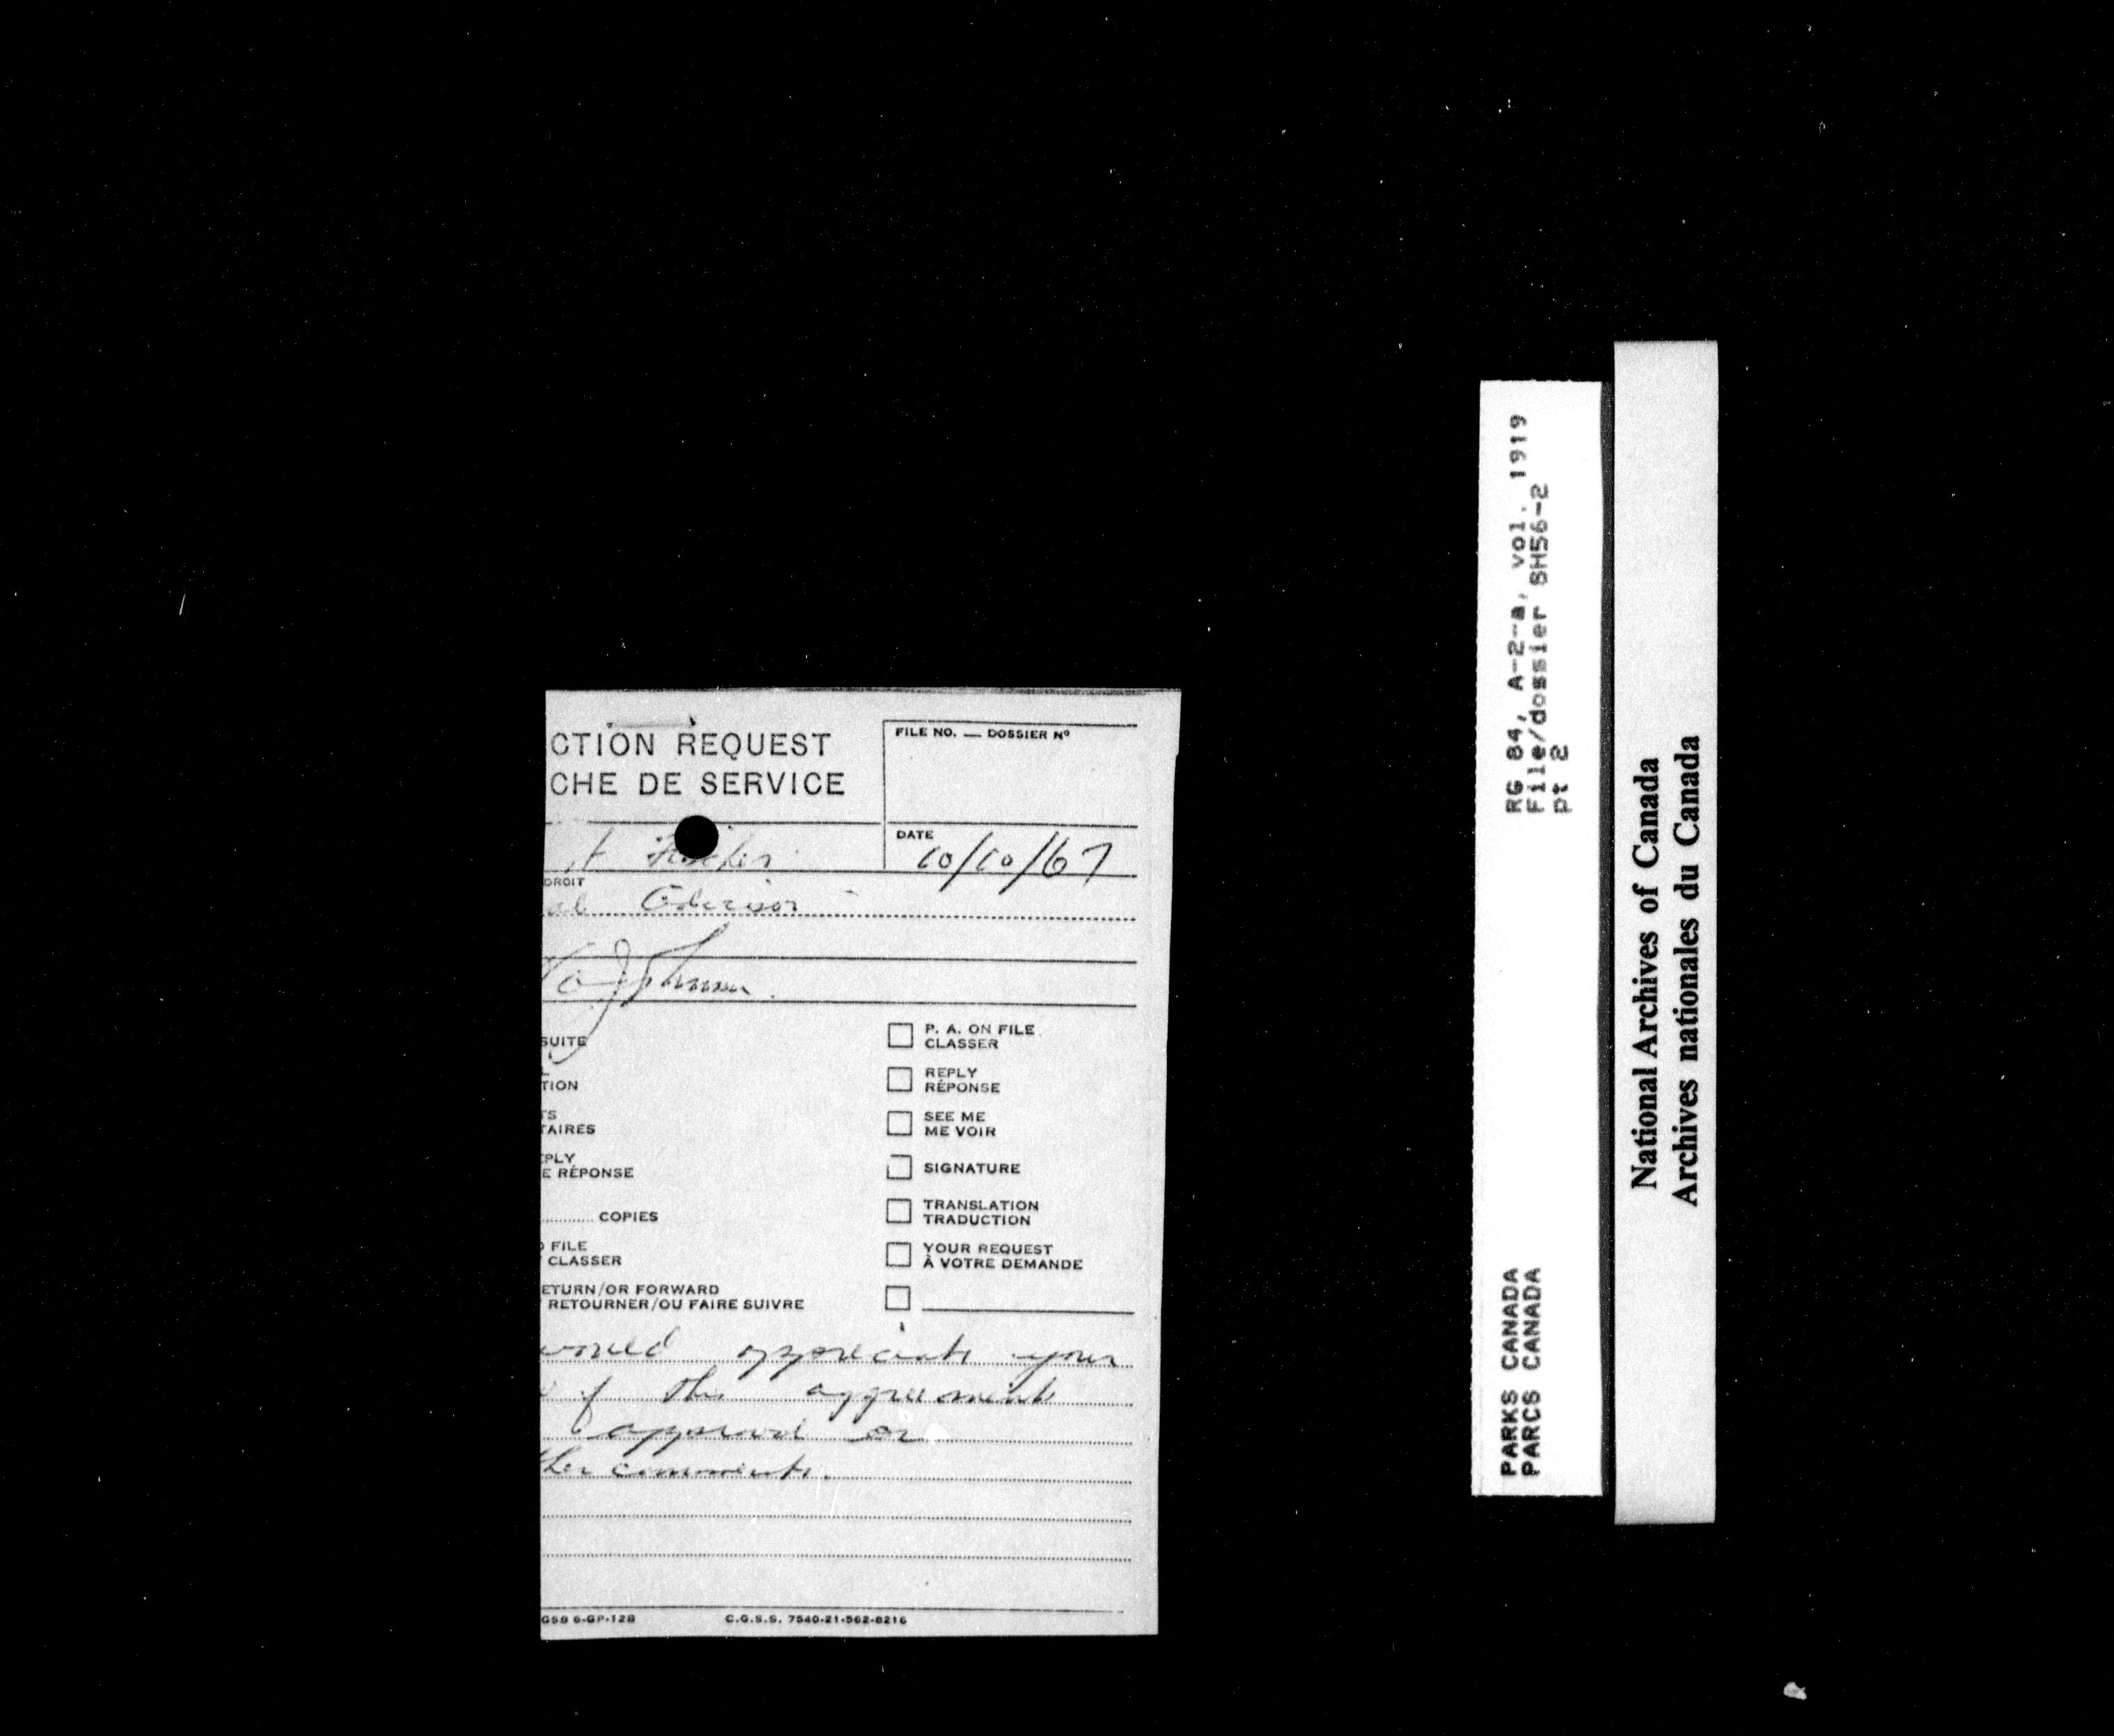 CTION REQUEST
CHE DE SERVICE
FILE NO. — DOSSIER Nº
DATE
10/10/67
DROIT
al
SUITE
TION
TS
TAIRES
EPLY
E RÉPONSE
............ COPIES
FILE
CLASSER
ETURN/OR FORWARD
RETOURNER/OU FAIRE SUIVRE
P. A. ON FILE
CLASSER
REPLY
RÉPONSE
SEE ME
ME VOIR
SIGNATURE
TRANSLATION
TRADUCTION
YOUR REQUEST
À VOTRE DEMANDE
would appreciate your
of this aggreement
approval or
ther comments.
GSB 6-GP-12B
C.G.S.S. 7540-21-562-8216
RG 84, A-2-a, vol. 1919
File/dossier 8H56-2
pt 2
PARKS CANADA
PARCS CANADA
National Archives of Canada
Archives nationales du Canada